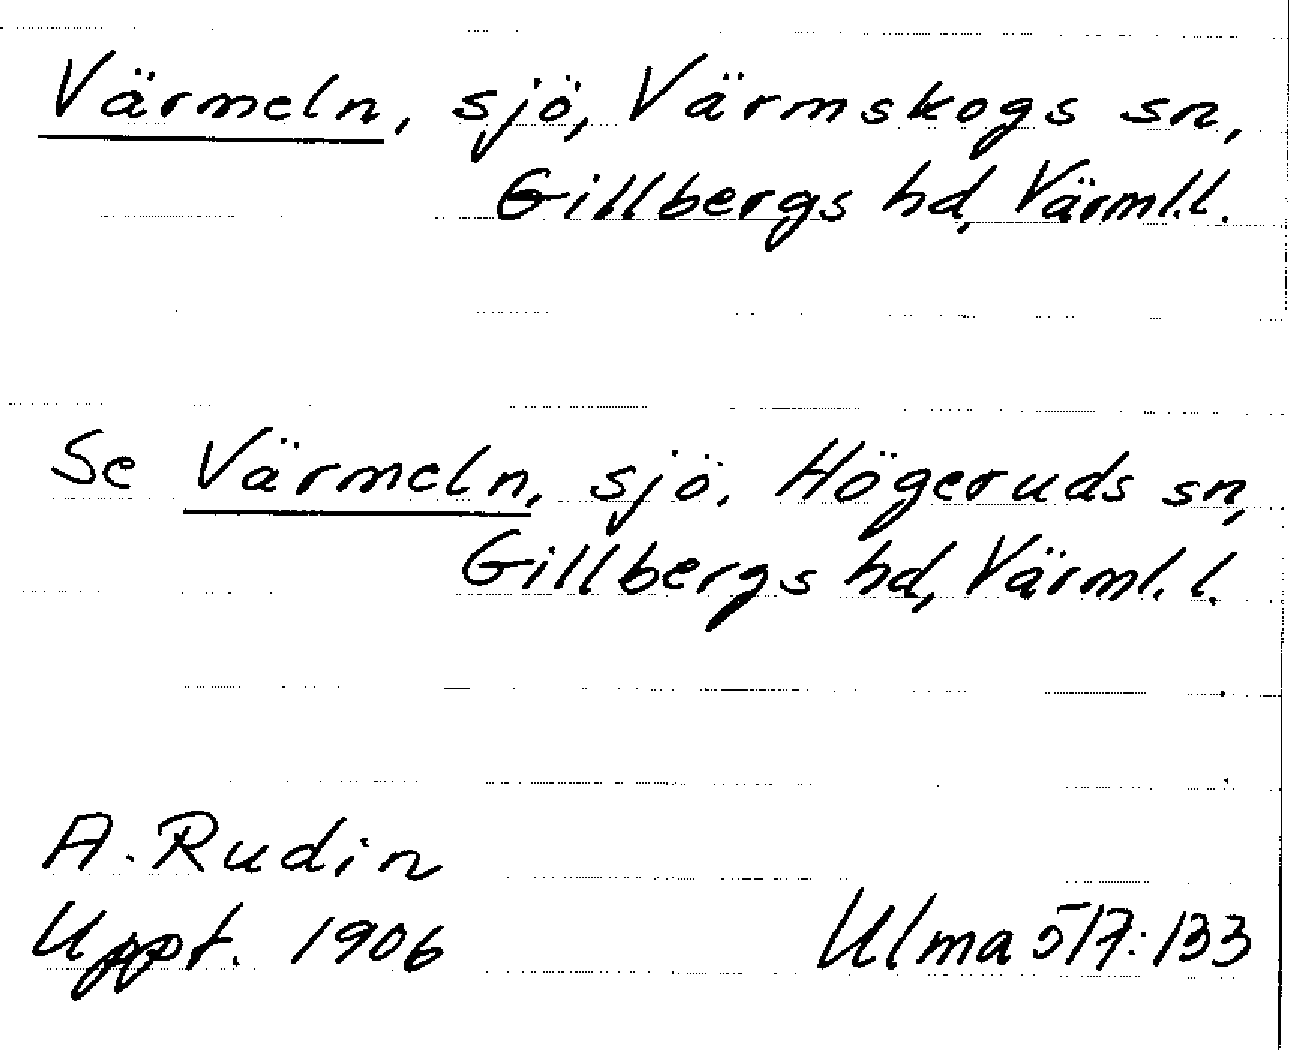 Värmeln, sjö, Värmskogs sn,
Gillbergs hd, Värml.l.
Se Värmeln, sjö, Högeruds sn,
Gillbergs hd, Värml.l.
A. Rudin
Uppt. 1906
Ulma 517:133